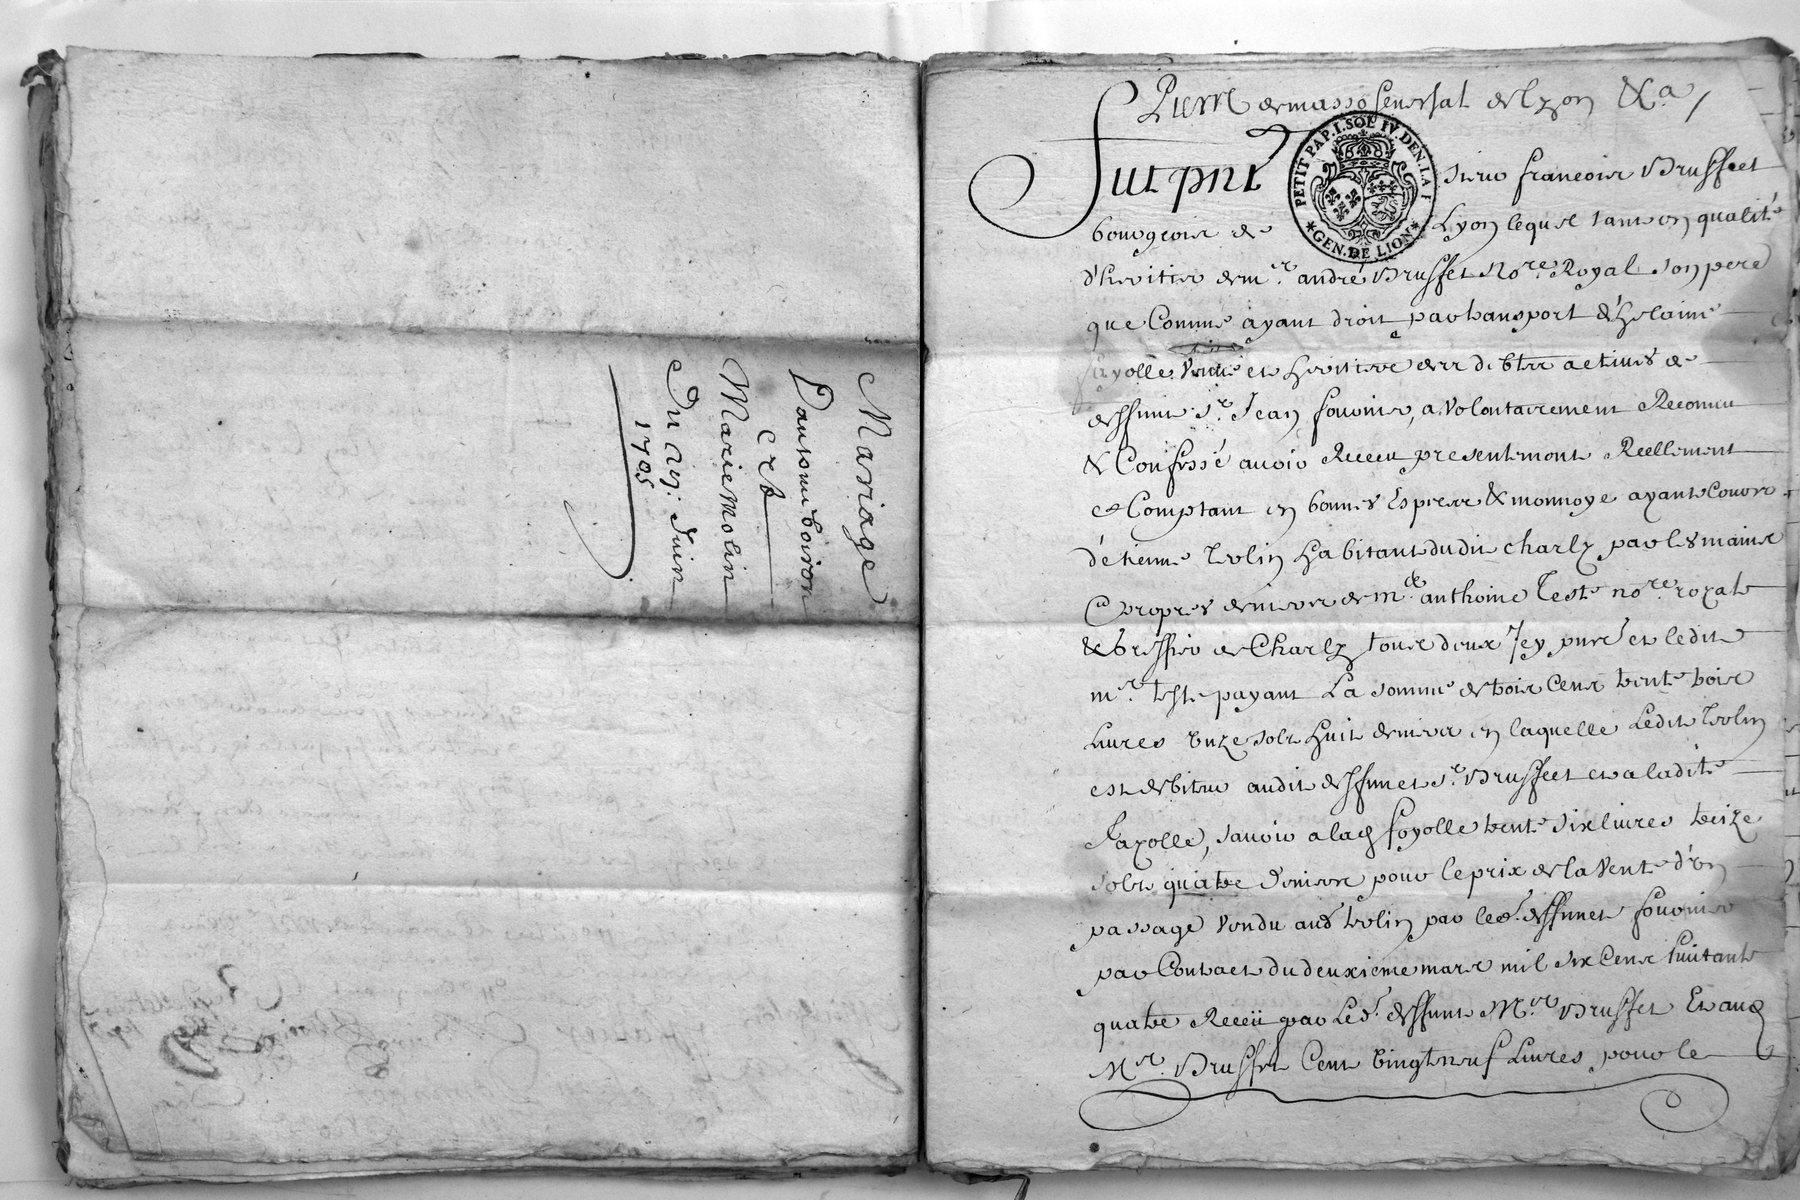 Mariage
Dantoine boiron
et
Marie Molin
Du 29: Juin
1705
Pierre demasso seneschal de lyon &a
PETIT PAP. 1. SOL IV. DEN. LA F
GEN. DE LION
Fut pnt sieur francois Brusset
bourgeois de Lyon lequel tant en qualité
d'heritier de mr. andré Brusset Nore. Royal son pere
que Comme ayant droit par transport d'helaine
fayolle Veuve et heritiere des debtes actives de
deffunt Sr. Jean fournier, a volontairement Reconnu
& Confessé avoir Receu presentement Reellement
et Comptant en bonnes Especes & monnoye ayant Cours
d'étienne Trolin habitant dudit charly par les mains
Et propres deniers de me. anthoine Teste nore. royale
& greffier de Charly tous deux Icy pnts et ledit
mr. teste payant La somme de trois Cens trente trois
Livres Unze sols huit deniers en laquelle Ledit Trolin
est debiteur audit deffunct Sr. Brusset et a ladite
fayolle, savoir a lad fayolle trente six livres treize
sols quatre deniers pour le prix de la Vente d'un
passage Vendu aud trolin par led. deffunct fournier
par Contract du deuxieme mars mil six Cens huitante
quatre Receü par Led. deffunt Mr. Brusset Et aud
Mr. Brusset Cent Vingt neuf Livres pour le